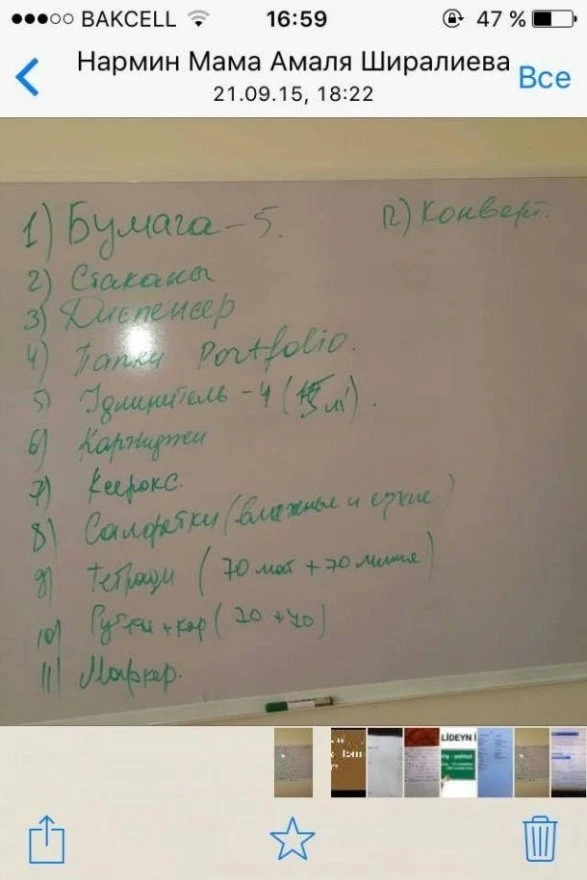 BAKCELL 16:59 47 %
Нармин Мама Амаля Ширалиева
21.09.15, 18:22
Все
1) Бумага – 5.
2) Стаканы
3) Диспенсер
4) Папки Portfolio.
5) Удлинитель – 4 (5 м).
6) Картиджи
7) Ксерокс.
8) Салфетки (влажные и сухие)
9) Тетради (70 мат + 70 линия)
10) Ручки + кар (70 + 70)
11) Маркер.
12) Конверт.
LİDEYN İ